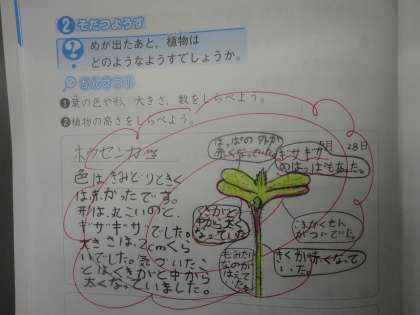 2 そだつようす
めが出たあと、植物は
どのようなようすでしょうか。
かんさつ1
❶葉の色や形、大きさ、数をしらべよう。
❷植物の高さをしらべよう。
ホウセンカ
月 28日
色はきみどりときく
は赤かったです。
形は、丸こいのと、
ギザギザでした。
大きさは、2cmくら
いでした。気づいたこ
とはくきが
と中から
太くなっていました。
はっぱの外が
赤くなっていた。
ギザギザ
のはっぱもあった。
と中から太く
なっていた
もみたい
なのが
はえて
いた。
もんが
ついていた。
くきが赤くなって
いた。